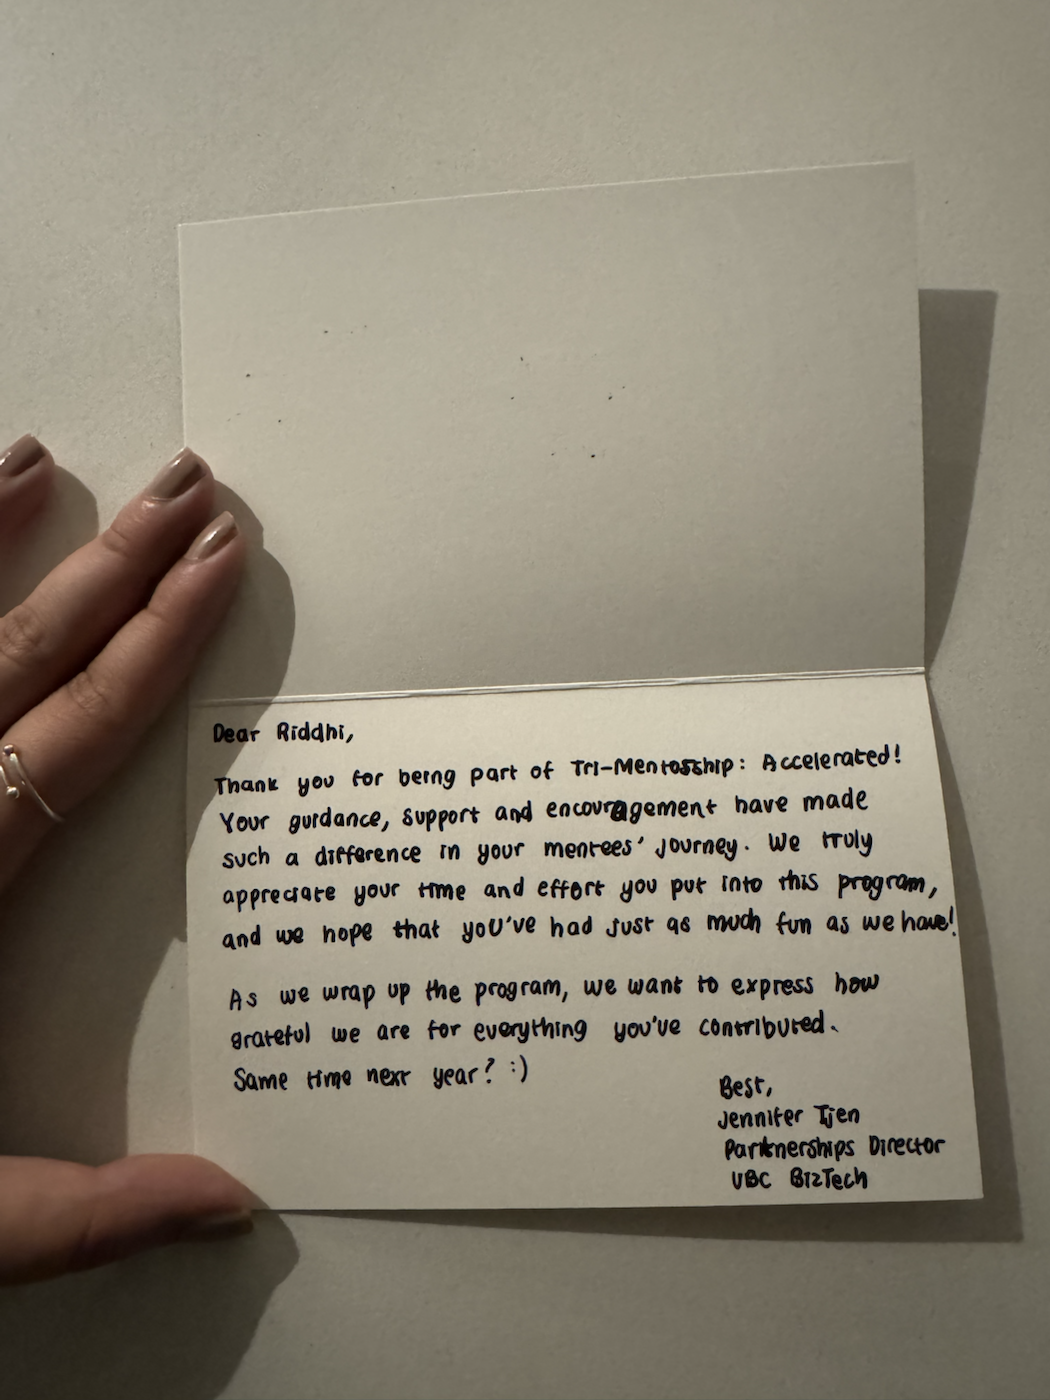 Dear Riddhi,
Thank you for being part of Tri-Mentorship: Accelerated!
Your guidance, support and encouragement have made
such a difference in your mentees' journey. We truly
appreciate your time and effort you put into this program,
and we hope that you've had just as much fun as we have!
As we wrap up the program, we want to express how
grateful we are for everything you've contributed.
Same time next year? :)
Best,
Jennifer Tjen
Partnerships Director
UBC BizTech